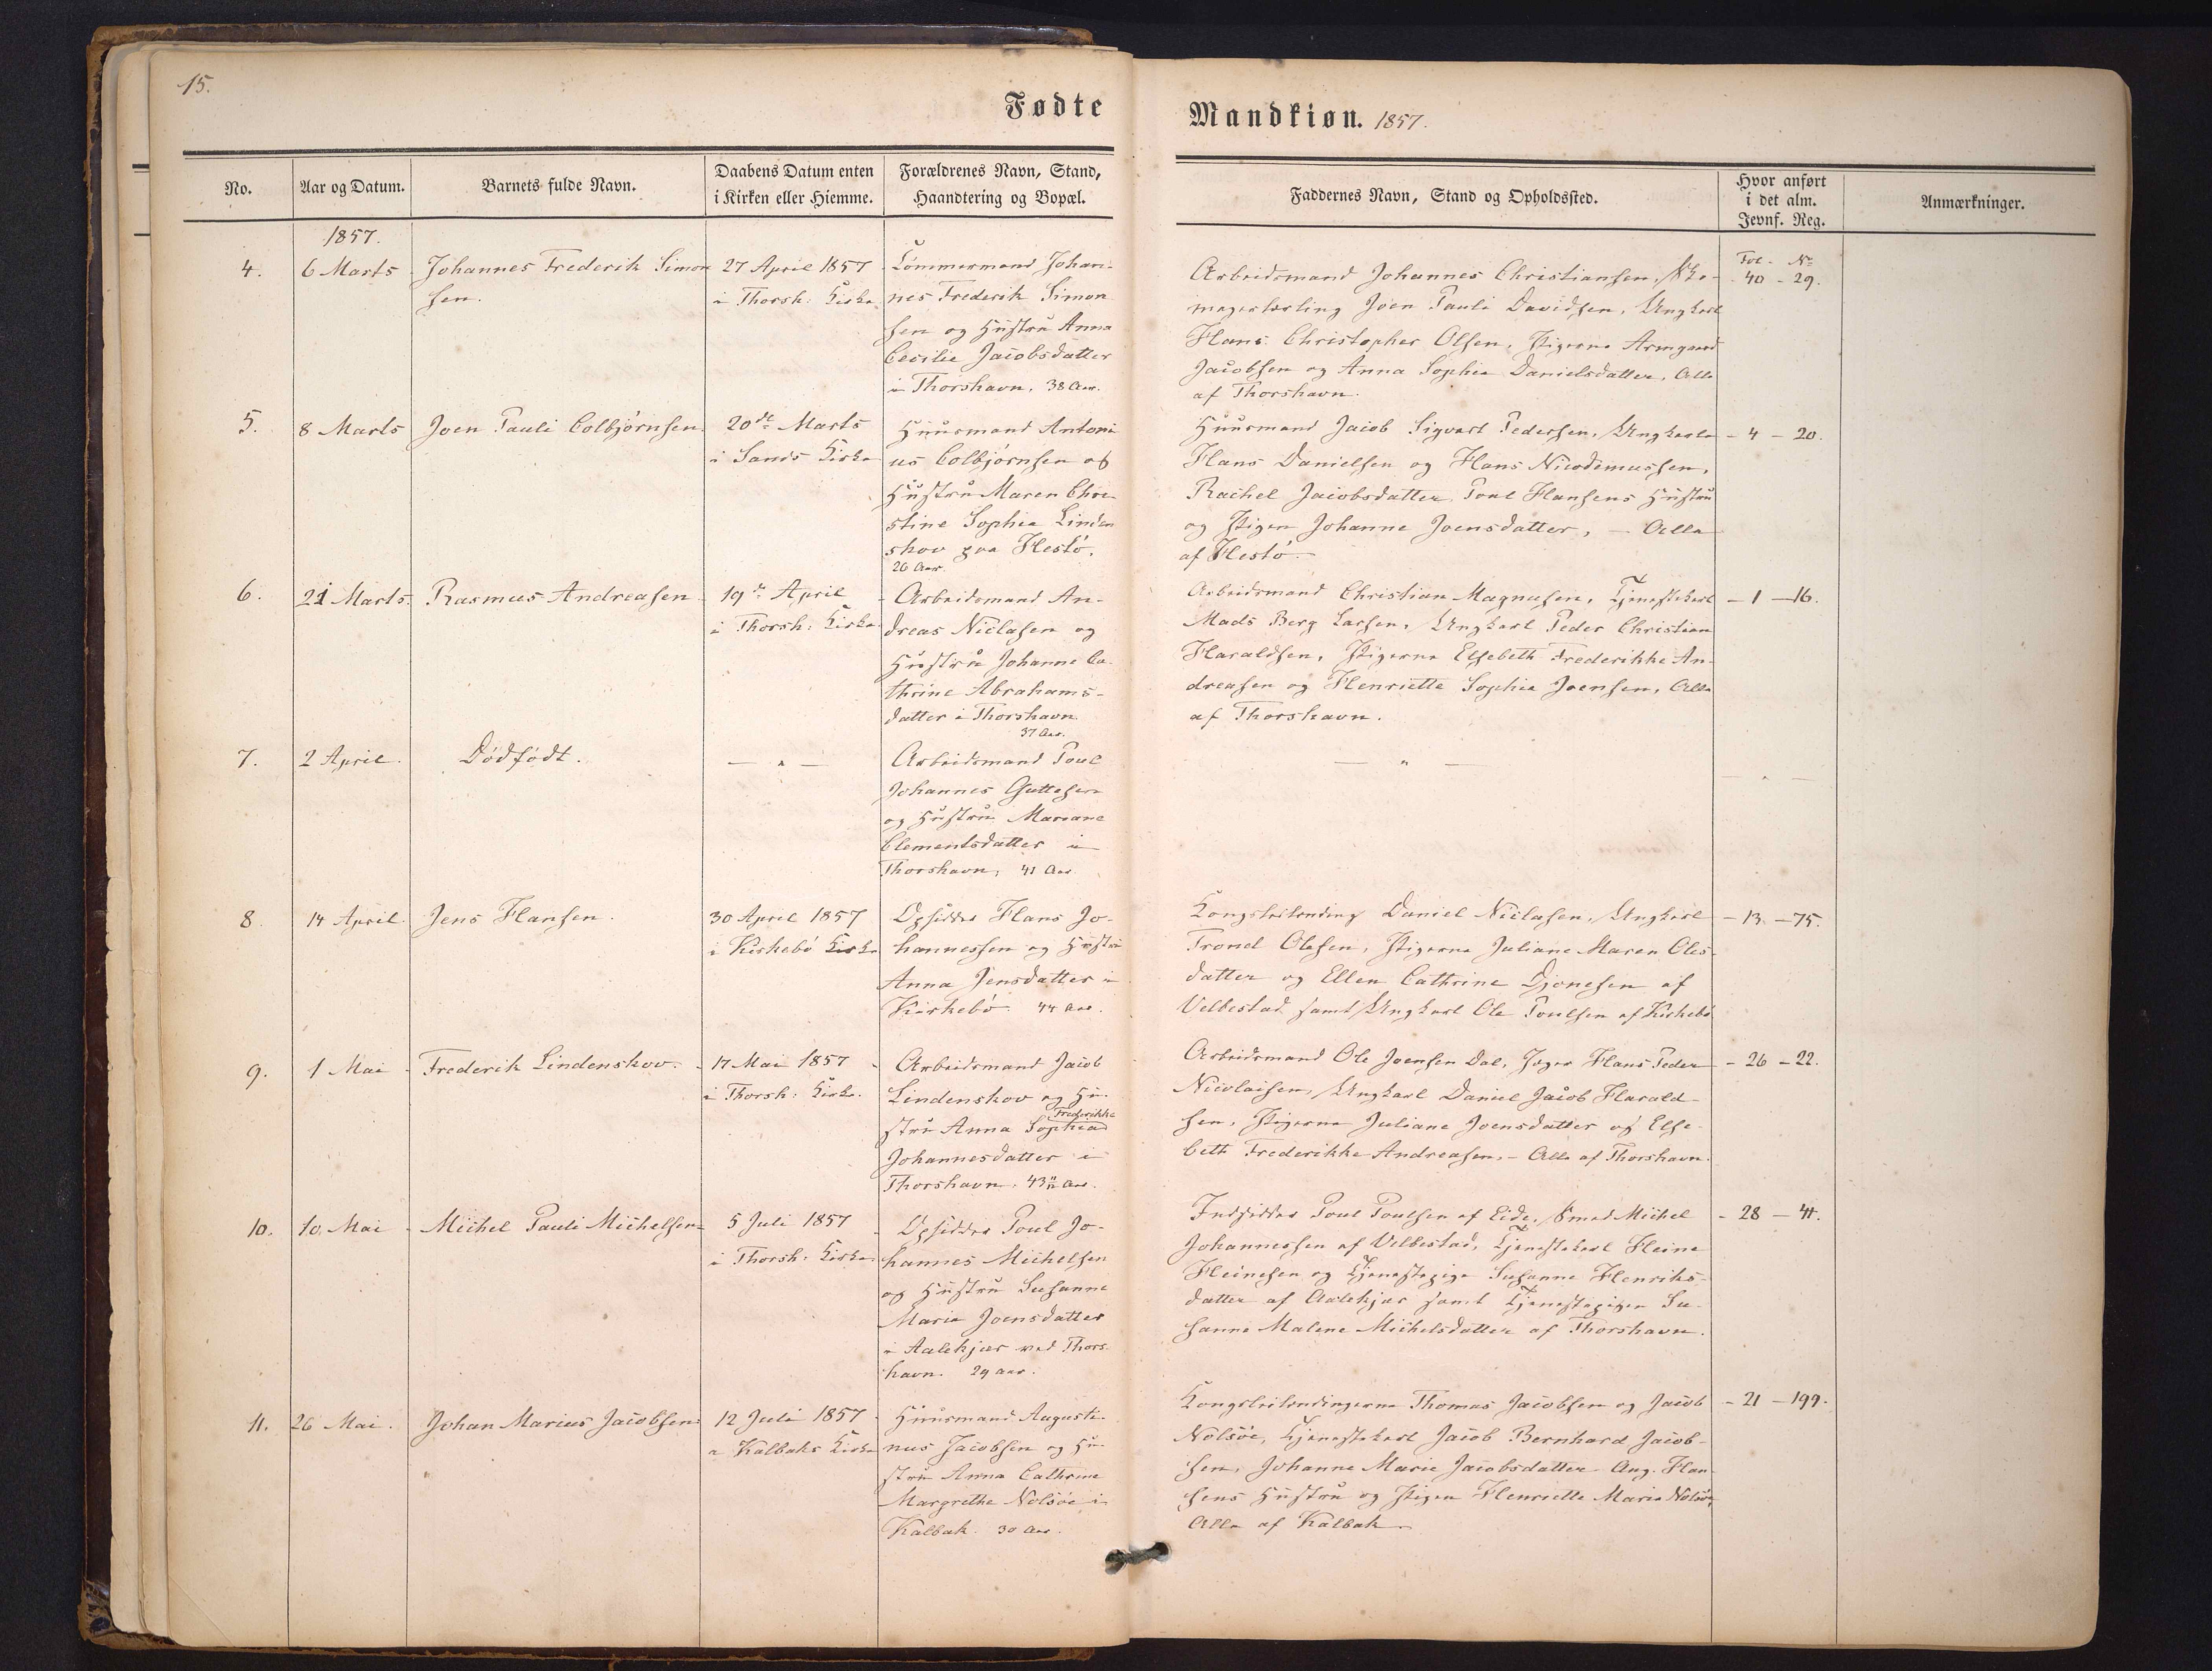 15.
Fødte
Mandkiøn. 1857.
No.
Aar og Datum.
Barnets fulde Navn.
Daabens Datum enten
i Kirken eller Hiemme.
Forældrenes Navn, Stand,
Haandtering og Bopæl.
Faddernes Navn, Stand og Opholdssted.
Hvor anført
i det alm.
Jevnf. Reg.
Anmærkninger.
1857.
4.
6 Marts
Johannes Frederik Simon
sen.
27 April 1857
i Thorsh: Kirke
Tømmermand Johan-
nes Frederik Simon
sen og Hustru Anna
Cecilie Jacobsdatter
i Thorshavn. 38 Aar.
Arbeidsmand Johannes Christiansen, Sko-
magerlærling Joen Pauli Davidsen, Ungkarl
Hans Christopher Olsen, Pigerne Armgard
Jacobsen og Anna Sophie Danielsdatter, Alle
af Thorshavn.
Fol - No
40 - 29.
5.
8 Marts
Joen Pauli Colbjørnsen
20de Marts
i Sands Kirke
Huusmand Antoni
us Colbjørnsen og
Hustru Maren Chri
stine Sophie Linden
skov paa Hestø.
26 Aar.
Huusmand Jacob Sigvart Pedersen, Ungkarle
Hans Danielsen og Hans Nicodemussen,
Rachel Jacobsdatter Poul Hansens Hustru
og Pigen Johanne Joensdatter, - Alle
af Hestø.
- 4 - 20.
6.
21 Marts.
Rasmus Andreasen
19de April
i Thorsh: Kirke
Arbeidsmand An-
dreas Niclasen og
Hustru Johanne Ca-
thrine Abrahams-
datter i Thorshavn
37 Aar.
Arbeidsmand Christian Magnusen, Tjenestekarl
Mads Berg Larsen, Ungkarl Peder Christian
Haraldsen, Pigerne Elsebeth Frederikke An-
dreasen og Henriette Sophie Joensen, Alle
af Thorshavn.
- 1 - 16.
7.
2 April.
Dødfødt.
— " —
Arbeidsmand Poul
Johannes Guttesen
og Hustru Mariane
Clementsdatter i
Thorshavn, 41 Aar.
— " —
— " —
8.
14 April.
Jens Hansen.
30 April 1857
i Kirkebø Kirke
Opsidder Hans Jo-
hannessen og Hustru
Anna Jensdatter i
Kirkebø 44 Aar.
Kongsleilænding Daniel Niclasen, Ungkarl
Trond Olesen, Pigerne Juliane Maren Oles-
datter og Ellen Cathrine Djonesen af
Velbestad samt Ungkarl Ole Poulsen af Kirkebø
- 13 - 75.
9.
1 Mai
Frederik Lindenskov.
17 Mai 1857
i Thorsh: Kirke.
Arbeidsmand Jacob
Lindenskov og Hu-
stru Anna Sophia
Frederikke
Johannesdatter i
Thorshavn. 43 Aar.
Arbeidsmand Ole Joensen Dal, Hans Peder
Nicolaisen, Ungkarl Daniel Jacob Harald-
sen, Pigerne Juliane Joensdatter og Else-
beth Frederikke Andreasen. - Alle af Thorshavn.
- 26 - 22.
10.
10. Mai
Michel Pauli Michelsen
5 Juli 1857
i Thorsh: Kirke
Opsidder Poul Jo-
hannes Michelsen
og Hustru Susanne
Marie Joensdatter
i Aalekjær ved Thors-
havn. 29 Aar.
Indsidder Poul Poulsen af Eide, Smed Michel
Johannessen af Velbestad, Tjenestekarl Heine
Heinesen og Tjenestepige Susanne Henriks-
datter af Aalekjær samt Tjenestepigen Su-
sanne Malene Michelsdatter af Thorshavn.
- 28 - 41.
11.
26 Mai.
Johan Marius Jacobsen
12 Juli 1857
i Kalbaks Kirke
Huusmand Augusti-
nus Jacobsen og Hu-
stru Anna Cathrine
Margrethe Nolsøe i
Kalbak 30 Aar.
Kongsleilændingerne Thomas Jacobsen og Jacob
Nolsøe, Tjenestekarl Jacob Bernhard Jacob-
sen, Johanne Marie Jacobsdatter Aug. Han-
sens Hustru og Pigen Henriette Marie Nolsøe,
Alle af Kalbak.
- 21 - 199.